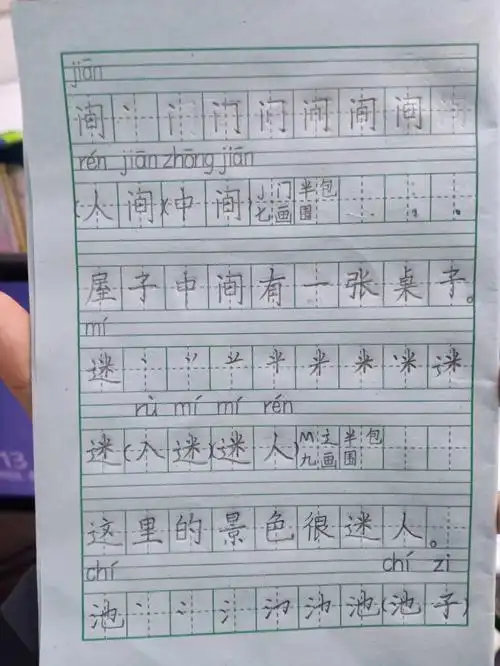 jiān
间 丶 门 门 问 问 间 间
rén jiān zhōng jiān
(人间)(中间) J 门 半包 七画 围
屋子中间有一张桌子。
mí
迷 丶 丷 䒑 半 米 米 迷 迷
rù mí mí rén
迷(入迷)(迷人) M 辶 半包 九画 围
这里的景色很迷人。
chí chí zi
池 丶 冫 氵 汈 汕 池(池子
13